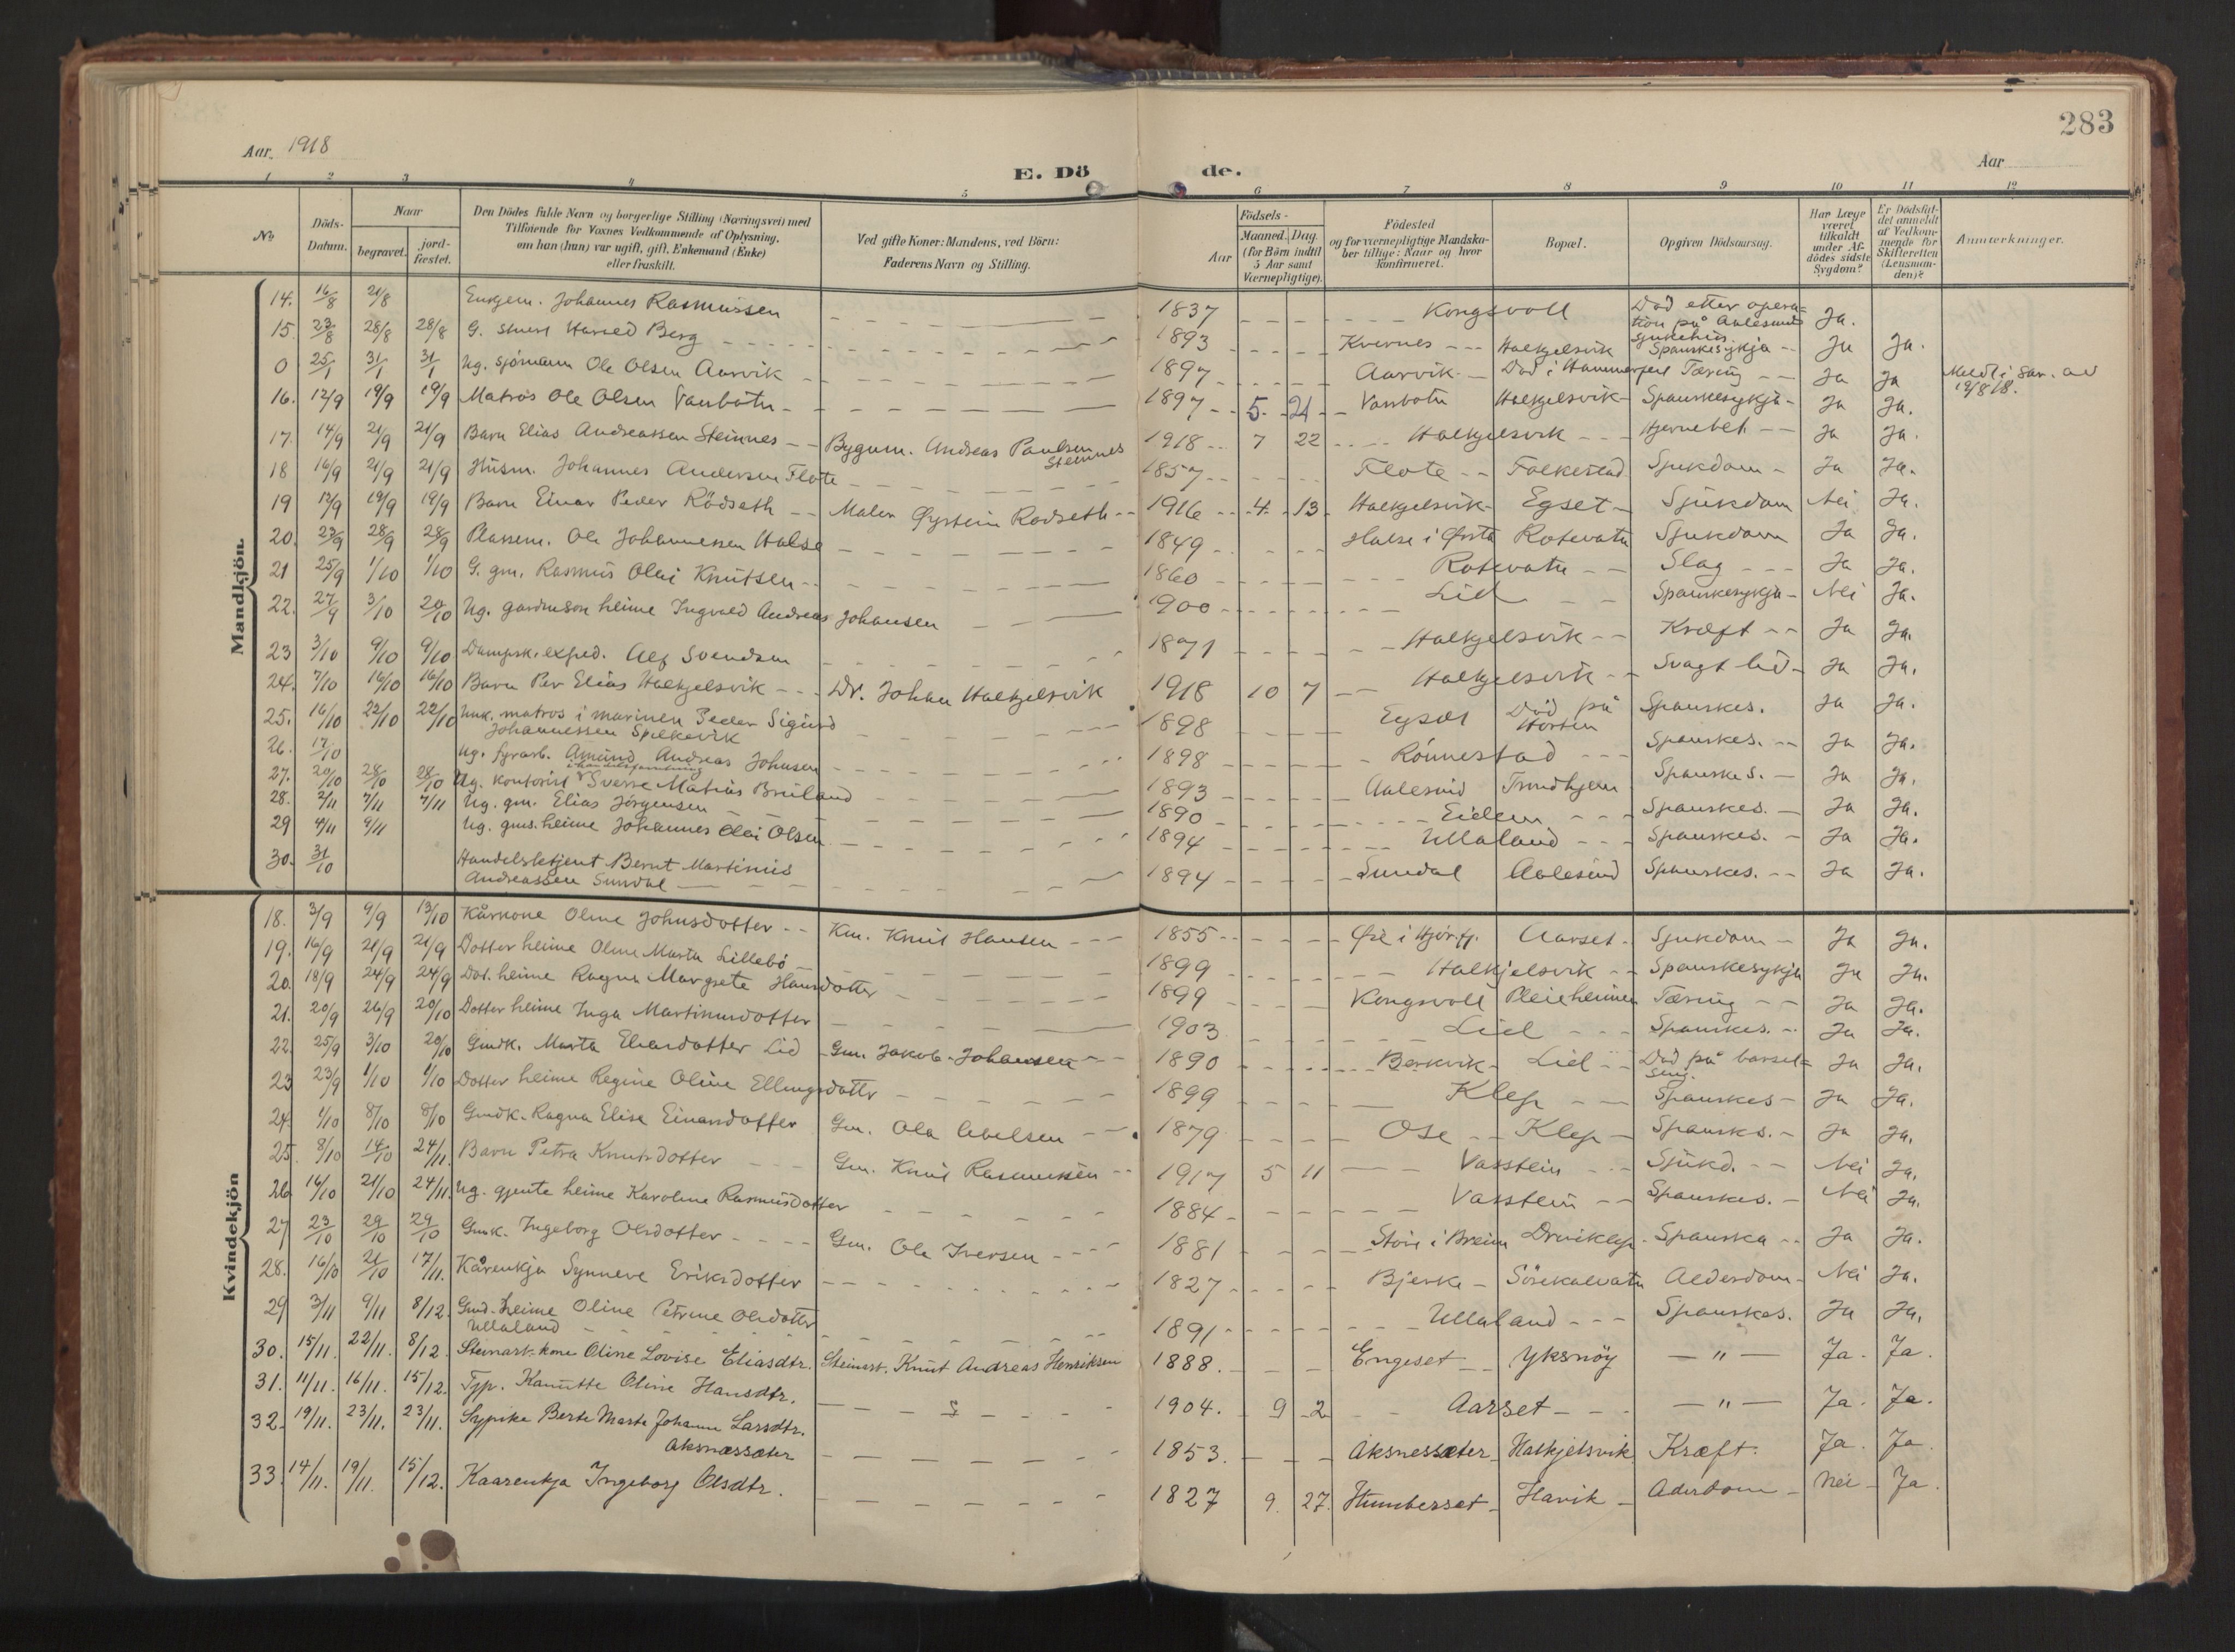 283
Aar. 1918
E. Dö de.
Aar
1 2 3 4 5 6 7 8 9 10 11 12
No
Döds-Datum.
Naar
begravet.
jord-fæstet.
Den Dödes fulde Navn og borgerlige Stilling (Næringsvei) med
Tilföiende for Voxnes Vedkommende af Oplysning,
om han (hun) var ugift, gift, Enkemand (Enke)
eller fraskilt.
Ved gifte Koner: Mandens, ved Börn:
Faderens Navn og Stilling.
Födsels-
Aar
Maaned. Dag
(for Börn indtil
5 Aar samt
Værnepligtige).
Födested
og for værnepligtige Mandska-
ber tillige: Naar og hvor
konfirmeret.
Bopæl.
Opgiven Dödsaarsag.
Har Læge
været
tilkaldt
under Af-
dödes sidste
Sygdom?
Er Dödsfal-
det anmeldt
af Vedkom-
mende for
Skifteretten
(Lensman-
den)?
Anmærkninger.
Mandkjön.
14. 16/8 21/8 Johannes Rasmussen 1837 Kongsvoll Död etter opera-
tion på Aalesunds
sjukehus Ja.
15. 23/8 28/8 28/8 G. Harald Berg 1893 Kvernes Halkjelsvik Spanskesykja Ja Ja.
0 25/1 31/1 31/1 Ug. sjömann Ole Olsen Aarvik 1897 Aarvik Död i Hammerfest Tæring Ja Ja
16. 12/9 19/9 19/9 Matros Ole Olsen Vassbotn 1897 5 21 Vassbotn Halkjelsvik Spanskesykja Ja Ja.
17. 14/9 21/9 21/9 Barn Elias Andreassen Steinnes Bygum. Andreas Paulsen
Steinnes 1918 7 22 Halkjelsvik Ja Ja.
18 16/9 21/9 21/9 Husm. Johannes Andersen Flote 1857 Flote Folkestad Sjukdom Ja Ja.
19 13/9 19/9 19/9 Barn Einar Peder Rödseth Maler Øystein Rødseth 1916 4 13 Halkjelsvik Egset Sjukdom Nei Ja.
20. 23/9 28/9 28/9 Plassm. Ole Johannessen Halse 1849 Halse i Ørsta Rotevatn Sjukdom Ja Ja.
21 25/9 1/10 1/10 G. gm. Rasmus Olai Knutsen 1860 Rotevatn Slag Ja Ja.
22. 27/9 3/10 20/10 Ug. gardmson heime Ingvald Andreas Johansen 1900 Lid Spanskesykja Nei Ja.
23 3/10 9/10 9/10 Dampsk. exped. Alf Svendsen 1871 Halkjelsvik Kræft Ja Ja.
24. 7/10 16/10 16/10 Barn Per Elias Halkjelsvik Dr. Johan Halkjelsvik 1918 10 7 Halkjelsvik Svagt liv Ja Ja.
25. 16/10 22/10 22/10 Unk. matros i marinen Peder Sigurd
Johannessen Spilkevik 1898 Egset Död på
Horten Spanskes. Ja Ja.
26. 17/10 Ug. fyrarb. Amund Andreas Johnsen 1898 Rönnestad Spanskes. Ja Ja.
27. 20/10 28/10 28/10 Ug. kontorist Sverre Matias Breiland 1893 Aalesund Trondhjem Spanskes. Ja Ja.
28. 2/11 7/11 7/11 Ug. gm. Elias Jörgensen 1890 Eidem Spanskes. Ja Ja.
29 4/11 9/11 Ug. gms. heime Johannes Olai Olsen 1894 Ullaland Spanskes. Ja Ja.
30. 31/10 Handelsbetjent Bernt Martinus
Andreassen Sundal 1894 Sundal Aalesund Spanskes. Ja Ja.
Kvindekjön
18. 3/9 9/9 13/10 Kårkone Oline Johnsdotter Km. Knut Hansen 1855 Øie i Hjör.fj. Aarset Sjukdom Ja Ja.
19. 16/9 21/9 21/9 Dotter heime Oline Marta Lillebö 1899 Halkjelsvik Spanskesykja Ja Ja.
20. 18/9 24/9 24/9 Dot. heime Ragna Margrete Hansdotter 1899 Kongsvoll Pleieheimen Tæring Ja Ja.
21. 20/9 26/9 20/10 Dotter heime Inga Martinusdotter 1903 Lid Spanskes. Ja Ja.
22. 25/9 3/10 20/10 Gmdk. Marta Eliasdotter Lid Gm. Jakob Johansen 1890 Berkvik Lid Död på barsel-
seng. Ja Ja.
23 23/9 1/10 1/10 Dotter heime Regine Oline Ellingsdotter 1899 Klep Spanskes Ja Ja.
24. 1/10 8/10 8/10 Gmdk. Ragna Elise Einarsdotter Gm. Ola Abelsen 1879 Ose Klep Spansks. Ja Ja.
25. 8/10 14/10 24/11. Barn Petra Knutsdotter Gm. Knut Rasmussen 1917 5 11 Vasstein Sjukd. Nei Ja.
26 16/10 21/10 24/11. Ug. gjente heime Karoline Rasmusdotter 1884 Vasstein Spanskes. Nei Ja.
27 23/10 29/10 29/10 Gmk. Ingeborg Olsdotter Gm. Ole Iversen 1881 Störe i Breim Dravlklep Spanska Ja Ja.
28. 16/10 21/10 17/11. Kårenkja Synneve Eriksdotter 1827 Bjerke Sörekalvatn Alderdom Nei Ja.
29 3/11 9/11 8/12. Gmd. heime Oline Petrine Olsdotter
Ullaland 1891 Ullaland Spanskes. Ja Ja.
30. 15/11. 22/11. 8/12. Steinarb. kone Oline Lovise Eliasdtr. Steinarb. Knut Andreas Henriksen 1888. Engeset Yksnöy — " — Ja. Ja.
31. 11/11. 16/11. 15/12. Typ. Kanutte Oline Hansdtr. 1904. 9 2 Aarset — " — Ja. Ja.
32. 19/11. 23/11. 23/11. Sypike Berte Marte Johanne Larsdtr.
Aksnessæter 1853. Aksnessæter Halkjelsvik Kræft. Ja. Ja.
33. 14/11. 19/11. 15/12. Kaarenkja Ingeborg Olsdtr. 1827 9. 27. Humberset Havik Aderdom Nei Ja.